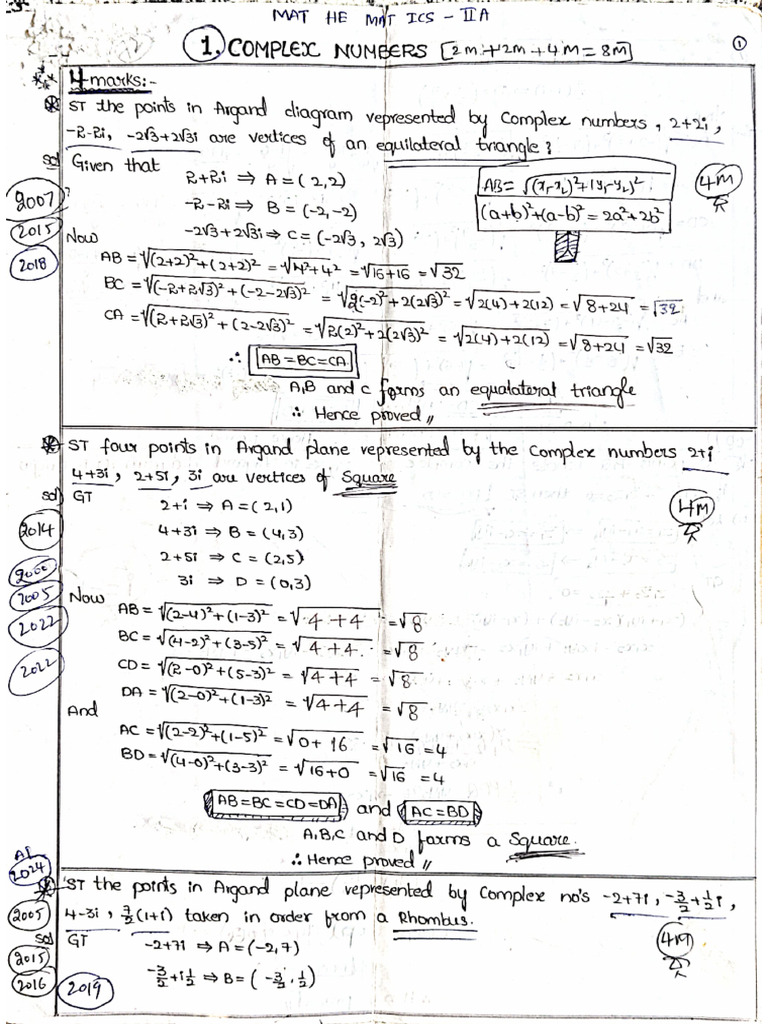 MAT HE MAT ICS - IIA
1. COMPLEX NUMBERS [2m+2m+4m=8M]
1
4 marks:-
ST the points in Argand diagram represented by Complex numbers, 2+2i,
-2-2i, -2√3+2√3i are vertices of an equilateral triangle?
Sol Given that
2+2i ⇒ A=(2,2)
-2-2i ⇒ B=(-2,-2)
-2√3+2√3i ⇒ C=(-2√3, 2√3)
AB=√(x₁-x₂)²+(y₁-y₂)²
(a+b)²+(a-b)²=2a²+2b²
4M
2007
2015
2018
Now
AB=√(2+2)²+(2+2)² =√4²+4² =√16+16 =√32
BC=√(-2+2√3)²+(-2-2√3)² =√2(-2)²+2(2√3)² =√2(4)+2(12) =√8+24 =√32
CA=√(2+2√3)²+(2-2√3)² =√2(2)²+2(2√3)² =√2(4)+2(12) =√8+24 =√32
∴ AB=BC=CA
A,B and C forms an equalateral triangle
∴ Hence proved //
ST four points in Argand plane represented by the Complex numbers 2+i
4+3i, 2+5i, 3i are vertices of Square
Sol GT
4M
2+i ⇒ A=(2,1)
4+3i ⇒ B=(4,3)
2+5i ⇒ C=(2,5)
3i ⇒ D=(0,3)
2014
2005
2022
2022
Now
AB=√(2-4)²+(1-3)² =√4+4 =√8
BC=√(4-2)²+(3-5)² =√4+4 =√8
CD=√(2-0)²+(5-3)² =√4+4 =√8
DA=√(2-0)²+(1-3)² =√4+4 =√8
And
AC=√(2-2)²+(1-5)² =√0+16 =√16 =4
BD=√(4-0)²+(3-3)² =√16+0 =√16 =4
AB=BC=CD=DA and AC=BD
A,B,C and D forms a Square.
∴ Hence proved //
AP
2024
ST the points in Argand plane represented by Complex no's -2+7i, -3/2+1/2i,
4-3i, 7/2(1+i) taken in order from a Rhombus.
2005
Sol GT
4M
-2+7i ⇒ A=(-2,7)
-3/2+i1/2 ⇒ B=(-3/2, 1/2)
2015
2016
2019